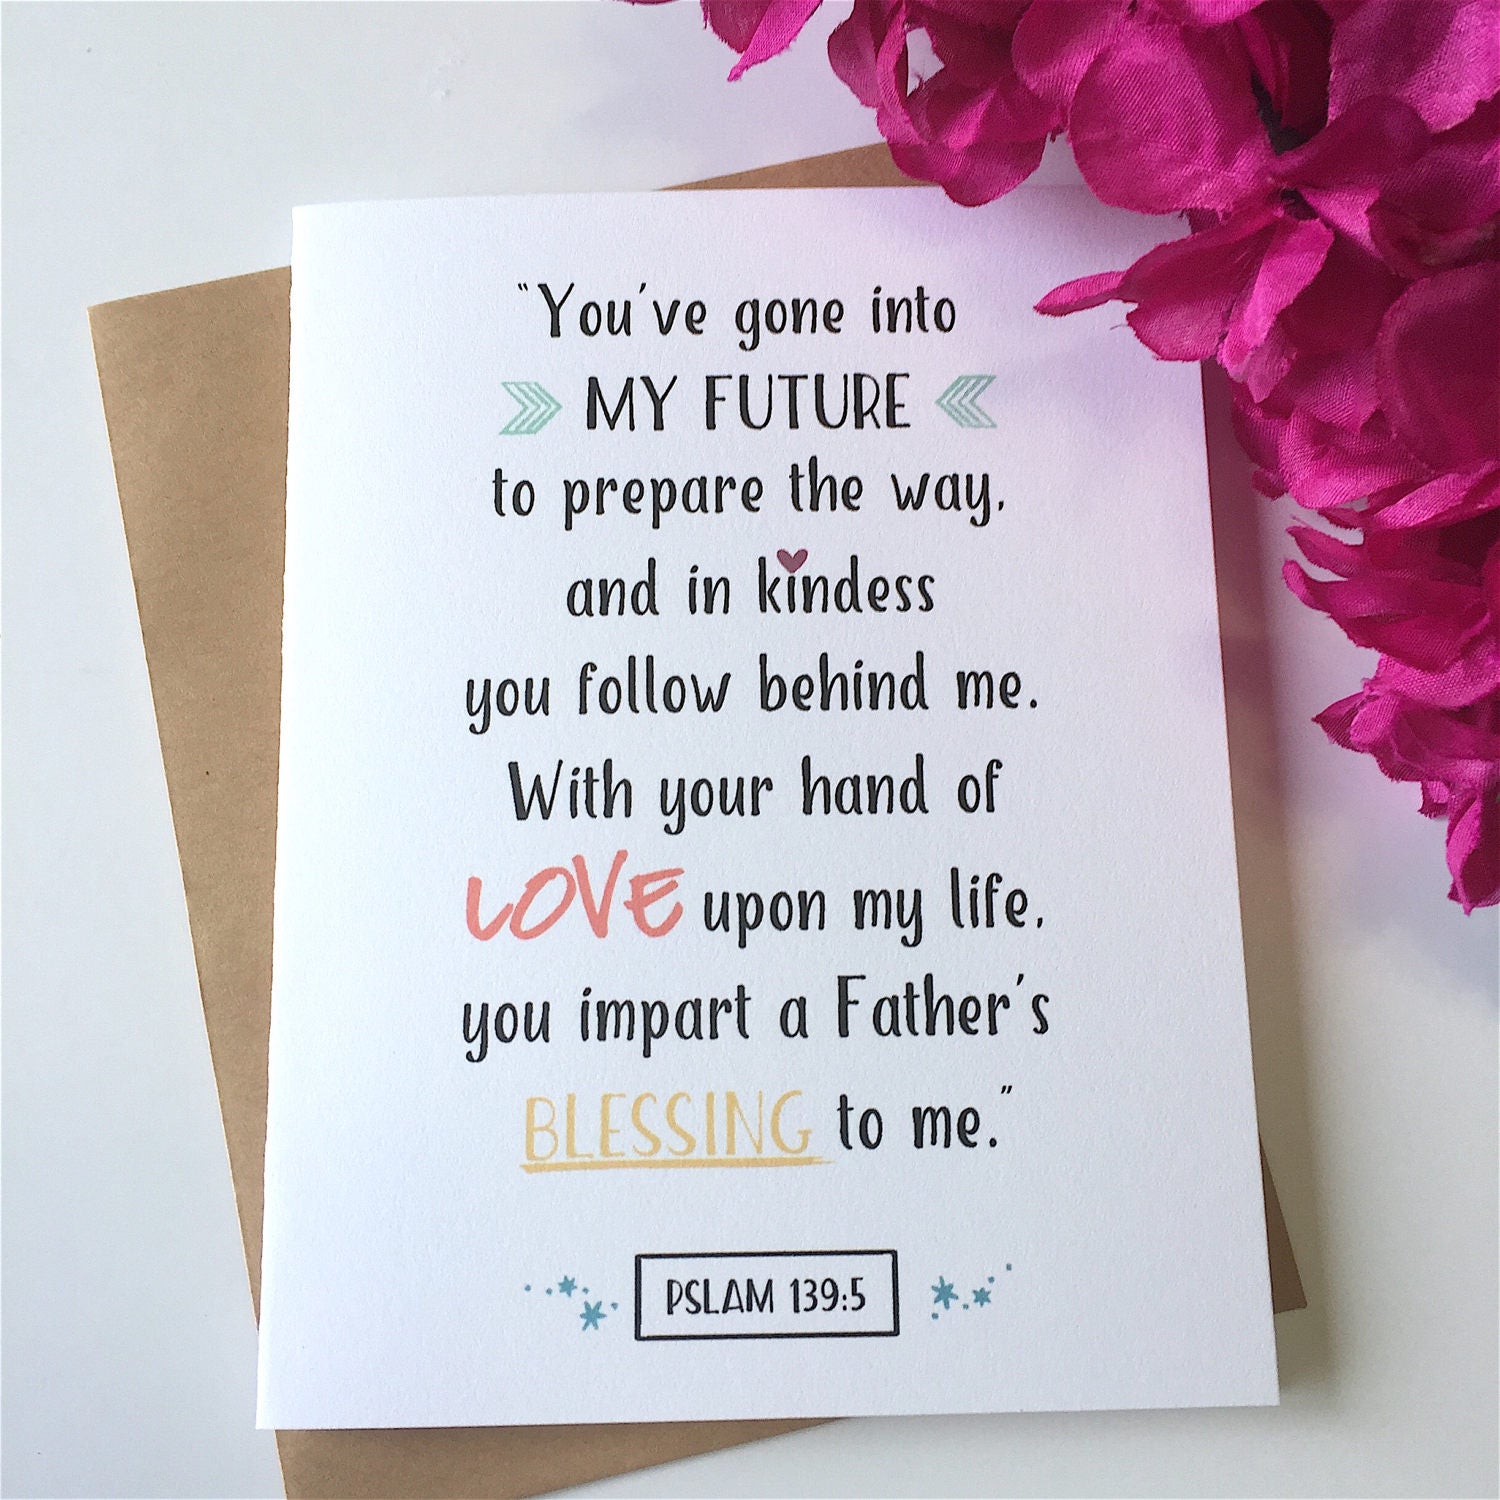 "You've gone into
MY FUTURE
to prepare the way,
and in kindess
you follow behind me.
With your hand of
LOVE upon my life,
you impart a Father's
BLESSING to me."
PSLAM 139:5